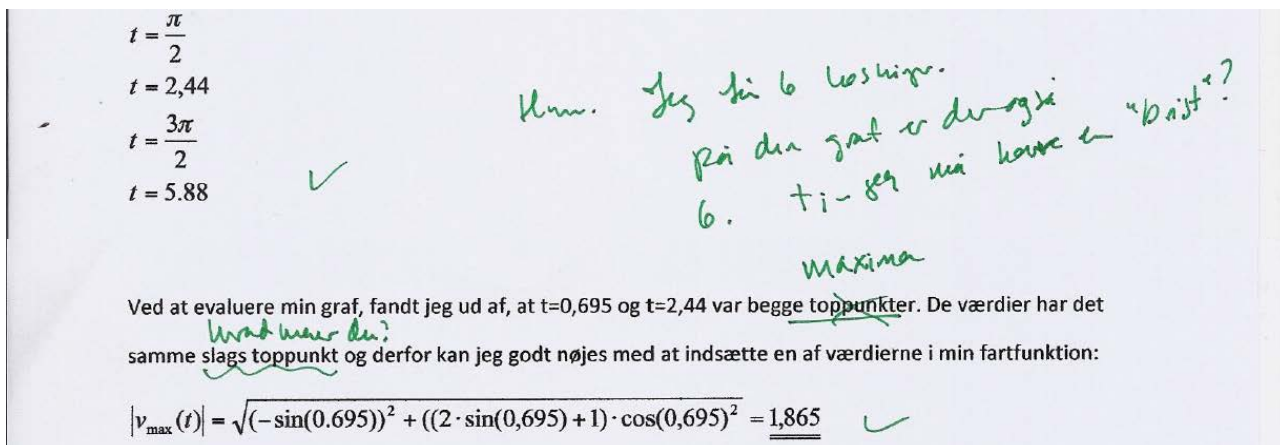 t = π/2
t = 2,44
t = 3π/2
t = 5.88
Hmm. Jeg får 6 løsninger.
på din graf er der også
6. ti - jeg må have en "brist"?
maxima
Ved at evaluere min graf, fandt jeg ud af, at t=0,695 og t=2,44 var begge toppunkter. De værdier har det
hvad mener du?
samme slags toppunkt og derfor kan jeg godt nøjes med at indsætte en af værdierne i min fartfunktion:
|v_max(t)| = √((-sin(0.695))² + ((2·sin(0,695)+1)·cos(0,695)² = 1,865